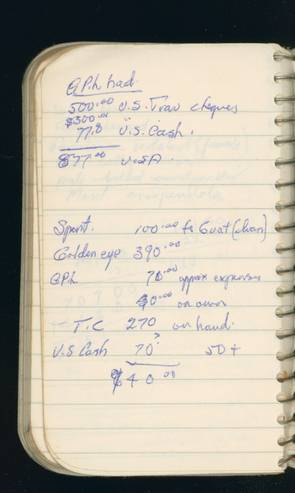 G.P.h had.
500.00 U.S. Trav cheques
$300.00 "
77.8 U.S. Cash.
877.00 U.S.A.
Spent. 100.00 to Guat (
Golden eye 390.00
G.P.h. 70.00 approx expenses
30.00 on
- T.C 270 on hand.
U.S Cash 70? 50 +
40.00